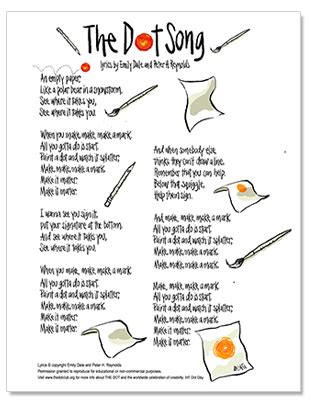 The Dot Song
lyrics by Emily Dale and Peter H. Reynolds
An empty paper,
Like a polar bear in a snowstorm,
See where it takes you,
See where it takes you.
When you make, make, make a mark.
All you gotta do is start.
Paint a dot and watch it splatter;
Make, make, make a mark.
Make it matter.
Make it matter.
I wanna see you sign it,
put your signature at the bottom.
And see where it takes you,
See where it takes you.
When you make, make, make a mark
All you gotta do is start.
Paint a dot and watch it splatter;
Make, make, make a mark
Make it matter;
Make it matter.
And when somebody else
Thinks they can't draw a line,
Remember that you can help.
Below that squiggle,
Help them sign.
And make, make, make a mark
All you gotta do is start.
Paint a dot and watch it splatter;
Make, make, make a mark.
Make, make, make a mark
All you gotta do is start.
Paint a dot and watch it splatter;
Make, make, make a mark
Make it matter.
Make it matter.
Lyrics © copyright Emily Dale and Peter H. Reynolds
Permission granted to reproduce for educational or non-commercial purposes.
Visit www.thedotclub.org for more info about THE DOT and the worldwide celebration of creativity: Int'l Dot Day